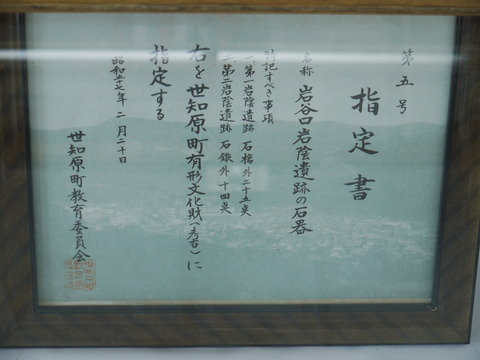 第五号
指定書
名称 岩谷口岩陰遺跡の石器
特記すべき事項
一、第一岩陰遺跡 石槍外二十五点
二、第二岩陰遺跡 石鏃外十四点
右を世知原町有形文化財(考古)に
指定する
昭和五七年二月二十日
世知原町教育委員会